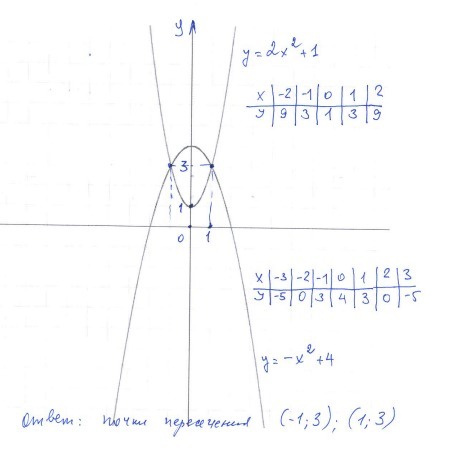 y
y = 2x² + 1
x | -2 | -1 | 0 | 1 | 2
y | 9 | 3 | 1 | 3 | 9
3
1
0 1
x | -3 | -2 | -1 | 0 | 1 | 2 | 3
y | -5 | 0 | 3 | 4 | 3 | 0 | -5
y = -x² + 4
Ответ: точки пересечения (-1; 3); (1; 3)